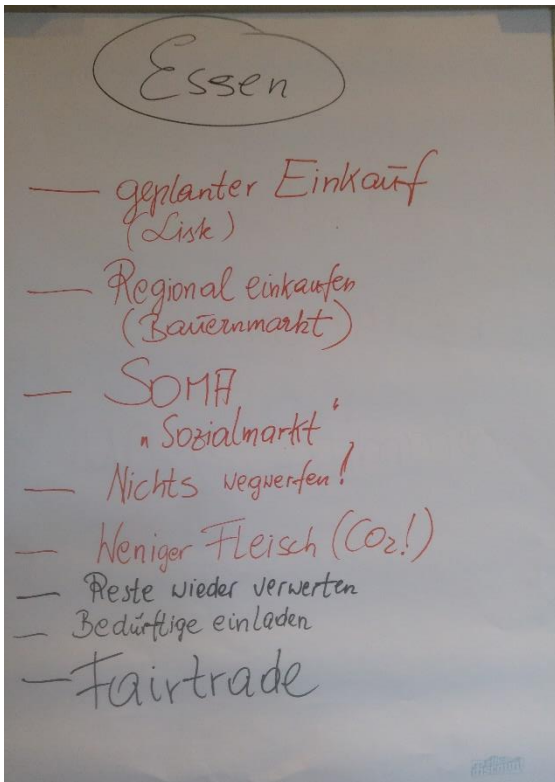 Essen
— geplanter Einkauf
(Liste)
— Regional einkaufen
(Bauernmarkt)
— SOMA
„Sozialmarkt“
— Nichts wegwerfen!
— Weniger Fleisch (CO₂!)
— Reste wieder verwerten
— Bedürftige einladen
— Fairtrade